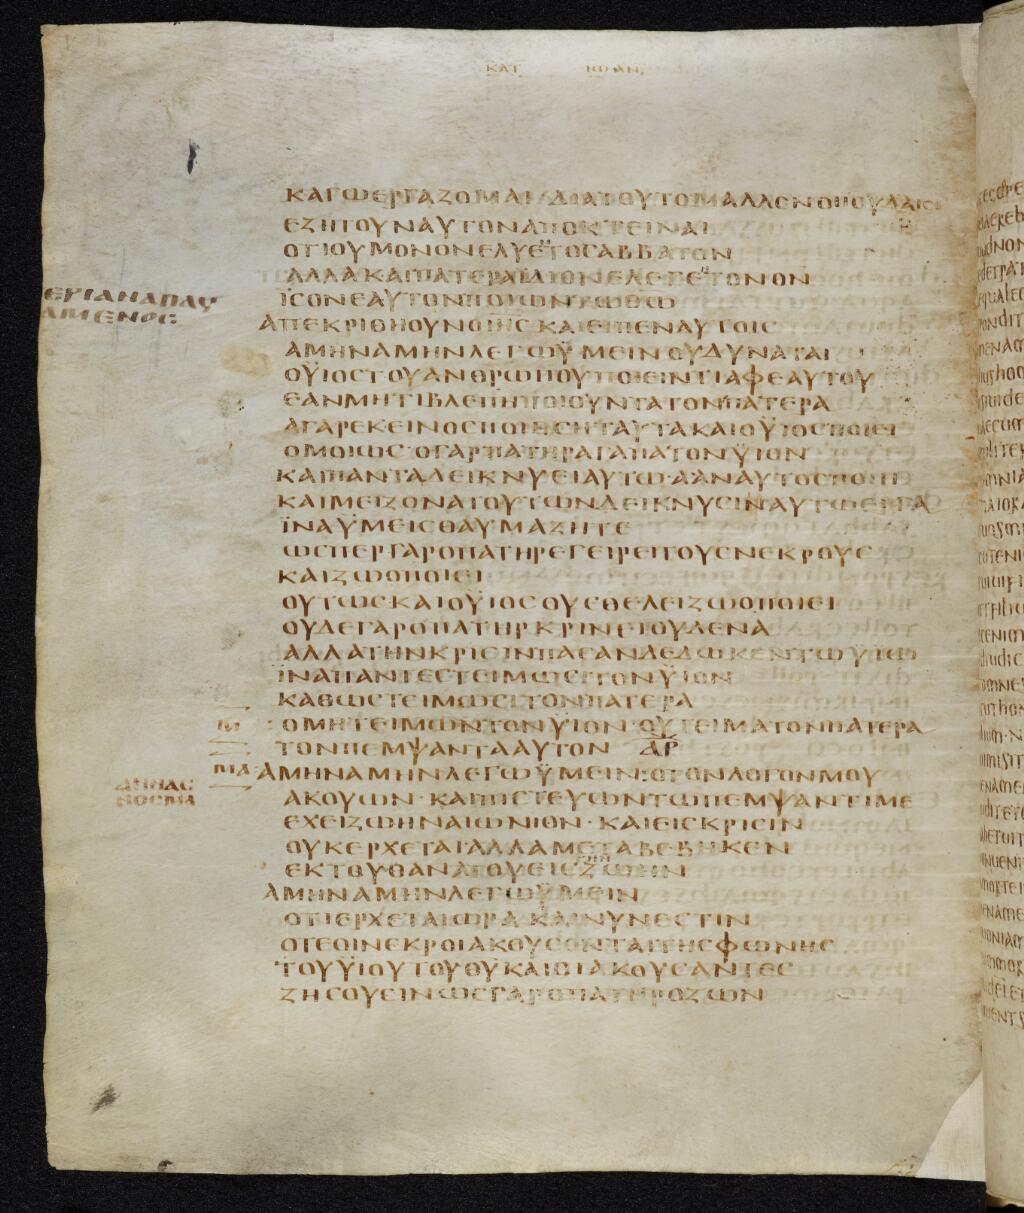 ΚΑΤ ΙΩΑΝ
ΚΑΓΩ ΕΡΓΑΖΟΜΑΙ ΔΙΑ ΤΟΥΤΟ ΜΑΛΛΟΝ ΟΙ ΙΟΥΔΑΙΟΙ
ΕΖΗΤΟΥΝ ΑΥΤΟΝ ΑΠΟΚΤΕΙΝΑΙ
ΟΤΙ ΟΥ ΜΟΝΟΝ ΕΛΥΕΝ ΤΟ ΣΑΒΒΑΤΟΝ
ΑΛΛΑ ΚΑΙ ΠΑΤΕΡΑ ΙΔΙΟΝ ΕΛΕΓΕΝ ΤΟΝ ΘΝ
ΙΣΟΝ ΕΑΥΤΟΝ ΠΟΙΩΝ ΤΩ ΘΩ
ΑΠΕΚΡΙΘΗ ΟΥΝ Ο ΙΗΣ ΚΑΙ ΕΙΠΕΝ ΑΥΤΟΙΣ
ΑΜΗΝ ΑΜΗΝ ΛΕΓΩ ΫΜΕΙΝ ΟΥ ΔΥΝΑΤΑΙ
Ο ΫΙΟΣ ΤΟΥ ΑΝΘΡΩΠΟΥ ΠΟΙΕΙΝ ΤΙ ΑΦ ΕΑΥΤΟΥ
ΕΑΝ ΜΗ ΤΙ ΒΛΕΠΗ ΠΟΙΟΥΝΤΑ ΤΟΝ ΠΑΤΕΡΑ
Α ΓΑΡ ΕΚΕΙΝΟΣ ΠΟΙΗΣΗ ΤΑΥΤΑ ΚΑΙ Ο ΫΙΟΣ ΠΟΙΕΙ
ΟΜΟΙΩΣ Ο ΓΑΡ ΠΑΤΗΡ ΑΓΑΠΑ ΤΟΝ ΫΙΟΝ
ΚΑΙ ΠΑΝΤΑ ΔΕΙΚΝΥΕΙ ΑΥΤΩ Α ΑΝ ΑΥΤΟΣ ΠΟΙΕΙ
ΚΑΙ ΜΕΙΖΟΝΑ ΤΟΥΤΩΝ ΔΕΙΚΝΥΣΙΝ ΑΥΤΩ ΕΡΓΑ
ΪΝΑ ΫΜΕΙΣ ΘΑΥΜΑΖΗΤΕ
ΩΣΠΕΡ ΓΑΡ Ο ΠΑΤΗΡ ΕΓΕΙΡΕΙ ΤΟΥΣ ΝΕΚΡΟΥΣ
ΚΑΙ ΖΩΟΠΟΙΕΙ
ΟΥΤΩΣ ΚΑΙ Ο ΫΙΟΣ ΟΥΣ ΘΕΛΕΙ ΖΩΟΠΟΙΕΙ
ΟΥΔΕ ΓΑΡ Ο ΠΑΤΗΡ ΚΡΙΝΕΙ ΟΥΔΕΝΑ
ΑΛΛΑ ΤΗΝ ΚΡΙΣΙΝ ΠΑΣΑΝ ΔΕΔΩΚΕΝ ΤΩ ΫΙΩ
ΪΝΑ ΠΑΝΤΕΣ ΤΕΙΜΩΣΙ ΤΟΝ ΫΙΟΝ
ΚΑΘΩΣ ΤΕΙΜΩΣΙ ΤΟΝ ΠΑΤΕΡΑ
Ο ΜΗ ΤΕΙΜΩΝ ΤΟΝ ΫΙΟΝ ΟΥ ΤΕΙΜΑ ΤΟΝ ΠΑΤΕΡΑ
ΤΟΝ ΠΕΜΨΑΝΤΑ ΑΥΤΟΝ ΑΡ
ΜΑ ΑΜΗΝ ΑΜΗΝ ΛΕΓΩ ΫΜΕΙΝ ΟΤΙ Ο ΤΟΝ ΛΟΓΟΝ ΜΟΥ
ΑΚΟΥΩΝ · ΚΑΙ ΠΙΣΤΕΥΩΝ ΤΩ ΠΕΜΨΑΝΤΙ ΜΕ
ΕΧΕΙ ΖΩΗΝ ΑΙΩΝΙΟΝ · ΚΑΙ ΕΙΣ ΚΡΙΣΙΝ
ΟΥΚ ΕΡΧΕΤΑΙ ΑΛΛΑ ΜΕΤΑΒΕΒΗΚΕΝ
ΕΚ ΤΟΥ ΘΑΝΑΤΟΥ ΕΙΣ ΤΗΝ ΖΩΗΝ
ΑΜΗΝ ΑΜΗΝ ΛΕΓΩ ΫΜΕΙΝ
ΟΤΙ ΕΡΧΕΤΑΙ ΩΡΑ ΚΑΙ ΝΥΝ ΕΣΤΙΝ
ΟΤΕ ΟΙ ΝΕΚΡΟΙ ΑΚΟΥΣΟΝΤΑΙ ΤΗΣ ΦΩΝΗΣ
ΤΟΥ ΫΙΟΥ ΤΟΥ ΘΥ ΚΑΙ ΟΙ ΑΚΟΥΣΑΝΤΕΣ
ΖΗΣΟΥΣΙΝ ΩΣ ΓΑΡ Ο ΠΑΤΗΡ Ο ΖΩΝ